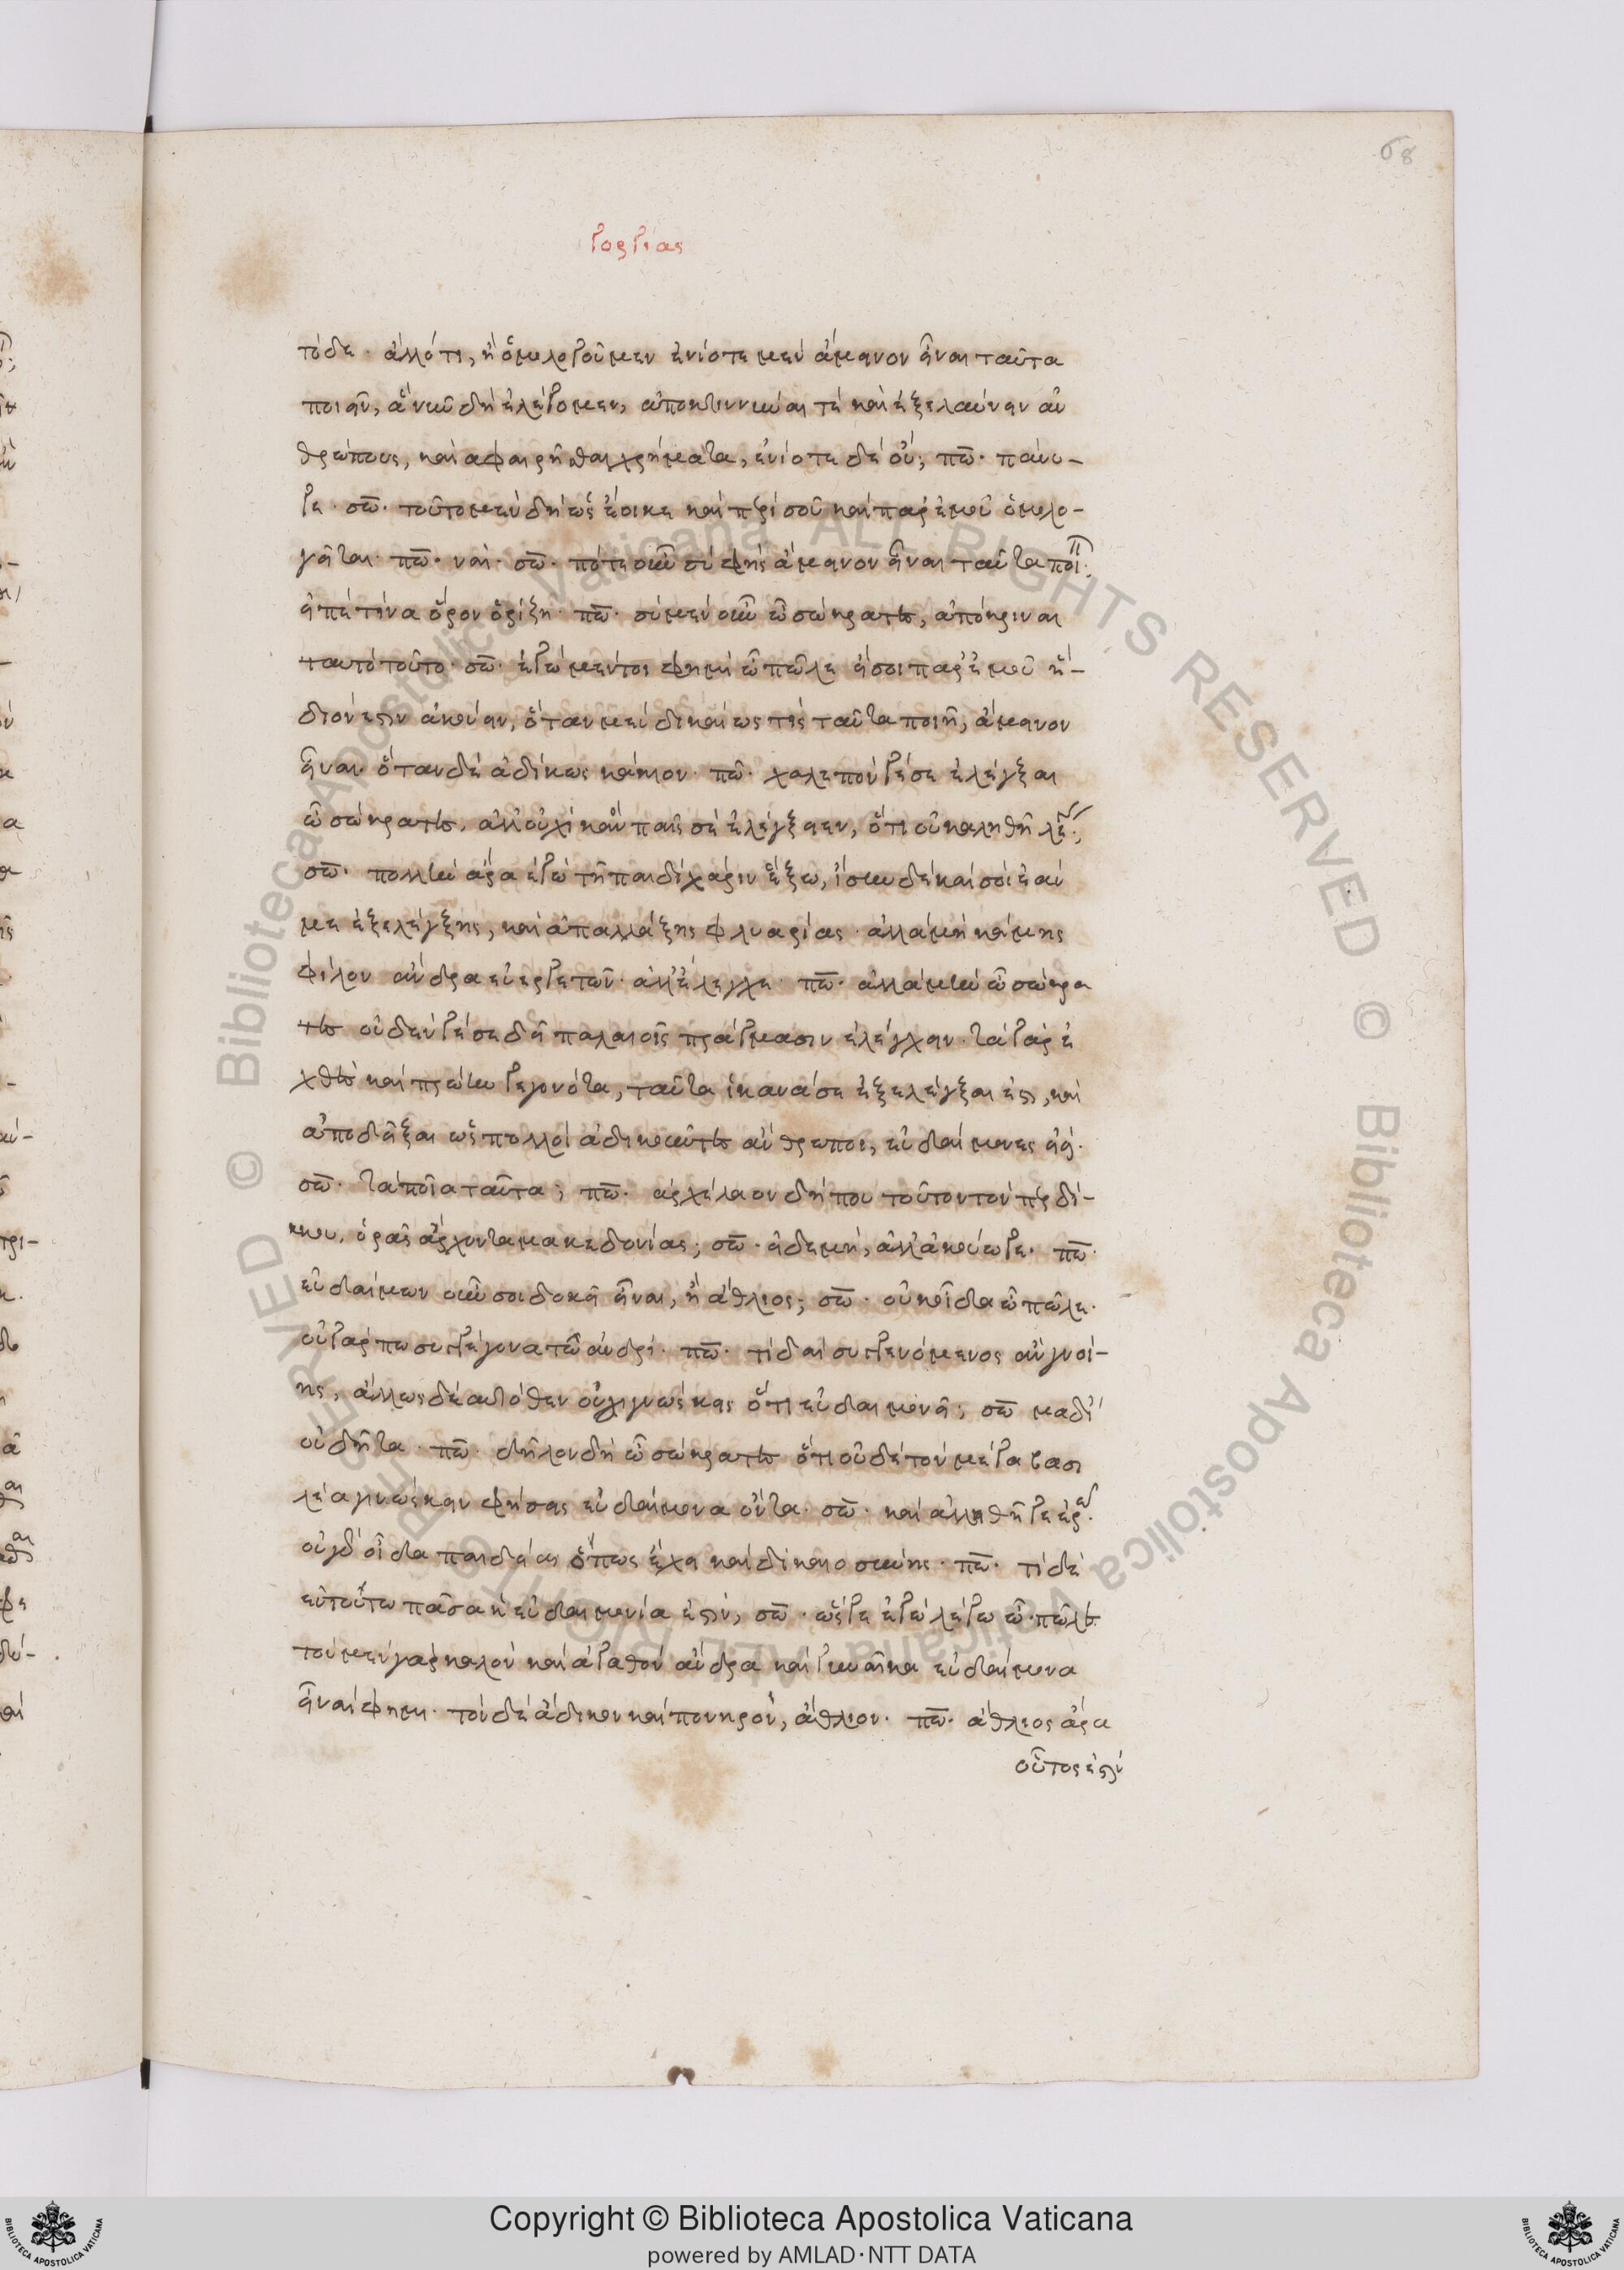 68
Γοργίας
τόδε· ἄλλό τι, ἢ ὁμολογοῦμεν ἐνίοτε μὲν ἄμεινον εἶναι ταῦτα
ποιεῖν, ἃ νῦν δὴ ἐλέγομεν, ἀποκτιννύναι τὲ καὶ ἐξελαύνειν ἀν
θρώπους, καὶ ἀφαιρεῖσθαι χρήματα, ἐνίοτε δὲ οὔ; πῶ· πάνυ-
γε· σω· τοῦτο μὲν δὴ ὡς ἔοικε καὶ παρὰ σοῦ καὶ παρ' ἐμοῦ ὁμολο-
γεῖται· πῶ· ναί· σω· πότε οὖν σὺ φῂς ἄμεινον εἶναι ταῦτα ποι·
εἰπὲ τίνα ὅρον ὁρίζῃ· πῶ· σὺ μὲν οὖν ὦ σώκρατες, ἀπόκριναι
ταυτὸ τοῦτο· σω· ἐγὼ μέντοι φημὶ ὦ πῶλε εἴ σοι παρ' ἐμοῦ ἥ-
διόν ἐστιν ἀκούειν, ὅταν μὲν δικαίως τὶς ταῦτα ποιῇ, ἄμεινον
εἶναι· ὅταν δὲ ἀδίκως κάκιον· πῶ· χαλεπόν γέ σε ἐλέγξαι
ὦ σώκρατες, ἀλλ' οὐχὶ κἂν παῖς σὲ ἐλέγξειεν, ὅτι οὐκ ἀληθῆ λέ·;
σω· πολλὴν ἄρα ἐγὼ τῷ παιδὶ χάριν ἕξω, ἴσην δὲ καὶ σοὶ ἐάν
με ἐξελέγξῃς, καὶ ἀπαλλάξῃς φλυαρίας· ἀλλὰ μὴ κάμῃς
φίλον ἄνδρα εὐεργετῶν· ἀλλ' ἔλεγχε· πῶ· ἀλλὰ μὴν ὦ σώκρα
τες οὐδέν γέ σε δεῖ παλαιοῖς πράγμασιν ἐλέγχειν· τὰ γὰρ ἐ
χθὲς καὶ πρώην γεγονότα, ταῦτα ἱκανά σε ἐξελέγξαι ἐστι, καὶ
ἀποδεῖξαι ὡς πολλοὶ ἀδικοῦντες ἄνθρωποι, εὐδαίμονες εἰσί·
σω· τὰ ποῖα ταῦτα; πῶ· ἀρχέλαον δήπου τοῦτον τὸν περδί-
κκου, ὁρᾷς ἄρχοντα μακεδονίας; σω· εἰ δὲ μή, ἀλλ' ἀκούω γε· πῶ·
εὐδαίμων οὖν σοι δοκεῖ εἶναι, ἢ ἄθλιος; σω· οὐκ οἶδα ὦ πῶλε·
οὐ γάρ πω συγγέγονα τῷ ἀνδρί· πῶ· τί δαὶ συγγενόμενος ἂν γνοί-
ης, ἄλλως δὲ αὐτόθεν οὐ γιγνώσκεις ὅτι εὐδαιμονεῖ; σω μὰ δί'
οὐ δῆτα· πῶ· δῆλον δὴ ὦ σώκρατες ὅτι οὐδὲ τὸν μέγα βασι
λέα γινώσκειν φήσεις εὐδαίμονα ὄντα· σω· καὶ ἀληθῆ γε ἐρ·
οὐ γὰρ οἶδα παιδείας ὅπως ἔχει καὶ δικαιοσύνης· πῶ· τί δέ
ἐν τούτω πᾶσα ἡ εὐδαιμονία ἐστίν, σω· ὥς γε ἐγὼ λέγω ὦ πῶλε
τὸν μὲν γὰρ καλὸν καὶ ἀγαθὸν ἄνδρα καὶ γυναῖκα εὐδαίμονα
εἶναί φημι· τὸν δὲ ἄδικον καὶ πονηρόν, ἄθλιον· πῶ· ἄθλιος ἄρα
οὗτος ἐστὶν
© Biblioteca Apostolica Vaticana ALL RIGHTS RESERVED © Biblioteca Apostolica Vaticana ALL RIGHTS RESERVED
Copyright © Biblioteca Apostolica Vaticana
powered by AMLAD·NTT DATA
BIBLIOTECA APOSTOLICA VATICANA
BIBLIOTECA APOSTOLICA VATICANA